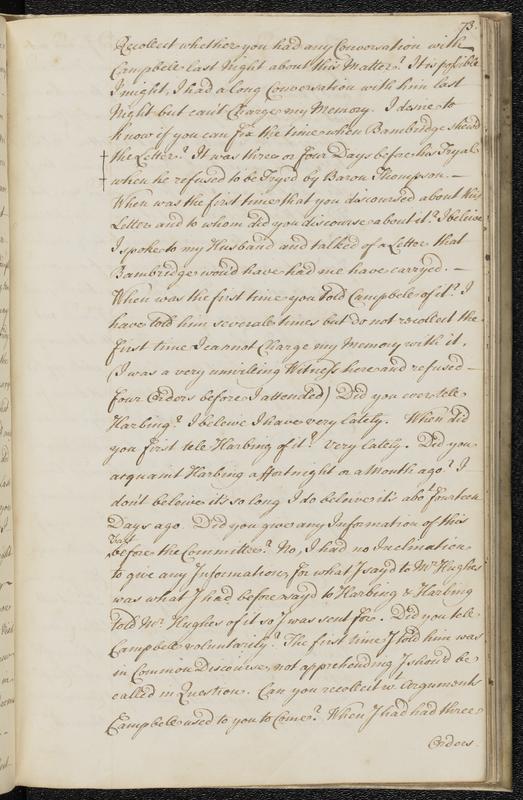 73.
Recolect whether you had any Conversation with
Campbele last Night about this Matter? It is possible
I might, I had a long Conversation with him last
Night but can't Charge my Memory. I desire to
know if you can fix the time when Bambridge shewd
the Letter? It was three or four Days before his Tryal
when he refused to be Tryed by Baron Thompson. —
When was the first time that you discoursed about this
Letter and to whom did you discourse about it? I beleive
I spoke to my Husband and talked of a Letter that
Bambridge would have had me have carryed. —
When was the first time you told Campbele of it? I
have told him severale times but do not recolect the
first time I cannot Charge my Memory with it.
(I was a very unwilling Witness here and refused
four Orders before I attended) Did you ever tele
Harbing? I beleive I have very lately. When did
you first tele Harbing of it? very lately. Did you
acquant Harbing a ffortnight or a Month ago? I
don't beleive it's so long I do beleive it's abot fourteen
Days ago. Did you give any Information of this
before the Committee? No, I had no Inclination
to give any Information, for what I sayd to Mr. Hughes
was what I had before sayd to Harbing & Harbing
told Mr. Hughes of it so I was sent for. Did you tele
Campbele voluntarily? The first time I told him was
in Common Discourse, not apprehending I should be
called in Question. Can you recolect wt. Arguments
Campbele used to you to Come? When I had had three
Orders